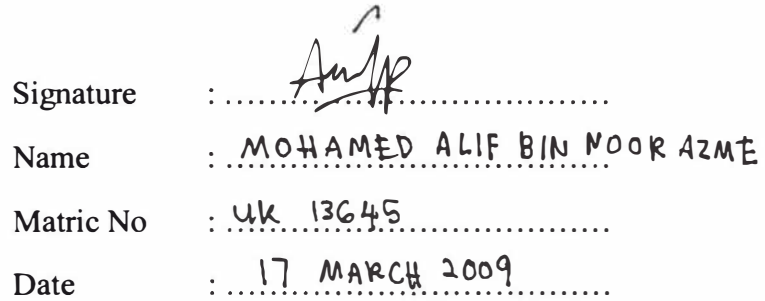 Signature :
Name : MOHAMED ALIF BIN NOOR AZME
Matric No : UK 13645
Date : 17 MARCH 2009